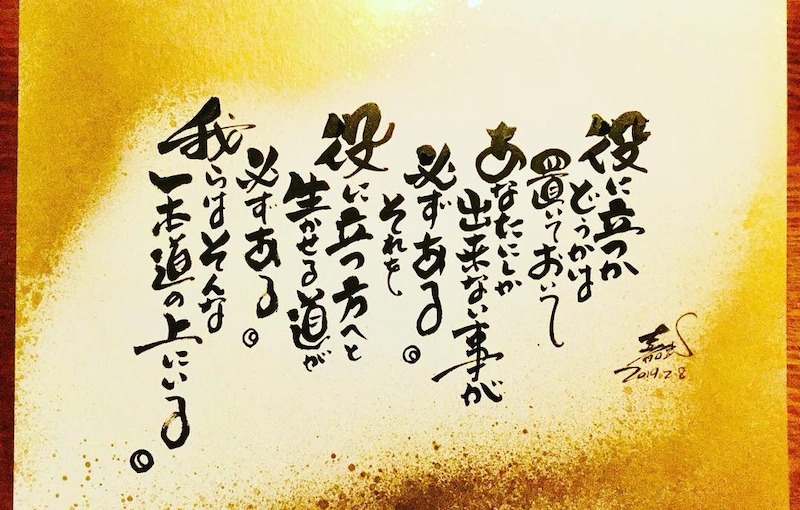 役に立つか
どうかは
置いておいて
あなたにしか
出来ない事が
必ずある。
それを
役に立つ方へと
生かせる道が
必ずある。
我らはそんな
一本道の上にいる。
2019.2.8